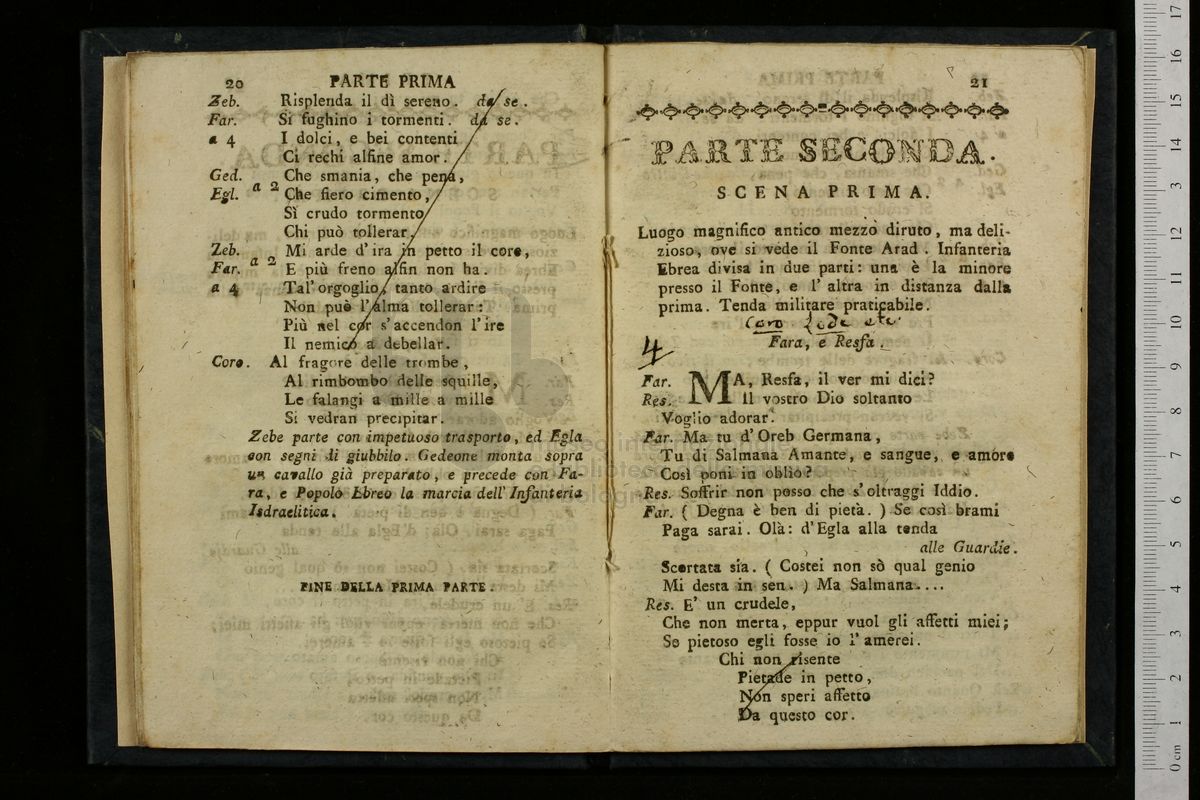 20 PARTE PRIMA
Zeb. Risplenda il dì sereno. da se.
Far. Si fughino i tormenti. da se.
a 4 I dolci, e bei contenti
Ci rechi alfine amor.
Ged. Che smania, che pena,
Egl. a 2 Che fiero cimento,
Sì crudo tormento
Chi può tollerar.
Zeb. Mi arde d'ira in petto il core,
Far. a 2 E più freno alfin non ha.
a 4 Tal'orgoglio, tanto ardire
Non può l'alma tollerar:
Più nel cor s'accendon l'ire
Il nemico a debellar.
Coro. Al fragore delle trombe,
Al rimbombo delle squille,
Le falangi a mille a mille
Si vedran precipitar.
Zebe parte con impetuoso trasporto, ed Egla
con segni di giubbilo. Gedeone monta sopra
un cavallo già preparato, e precede con Fa-
ra, e Popolo Ebreo la marcia dell'Infanteria
Isdraelitica.
FINE DELLA PRIMA PARTE.
21
PARTE SECONDA.
SCENA PRIMA.
Luogo magnifico antico mezzo diruto, ma deli-
zioso, ove si vede il Fonte Arad. Infanteria
Ebrea divisa in due parti: una è la minore
presso il Fonte, e l'altra in distanza dalla
prima. Tenda militare praticabile.
Caro
4 Fara, e Resfa.
Far. MA, Resfa, il ver mi dici?
Res. Il vostro Dio soltanto
Voglio adorar.
Far. Ma tu d'Oreb Germana,
Tu di Salmana Amante, e sangue, e amore
Così poni in obblìo?
Res. Soffrir non posso che s'oltraggi Iddio.
Far. ( Degna è ben di pietà. ) Se così brami
Paga sarai. Olà: d'Egla alla tenda
alle Guardie.
Scortata sia. ( Costei non sò qual genio
Mi desta in sen. ) Ma Salmana....
Res. E' un crudele,
Che non merta, eppur vuol gli affetti miei;
Se pietoso egli fosse io l'amerei.
Chi non risente
Pietade in petto,
Non speri affetto
Da questo cor.
0 cm 1 2 3 4 5 6 7 8 9 10 11 12 13 14 15 16 17